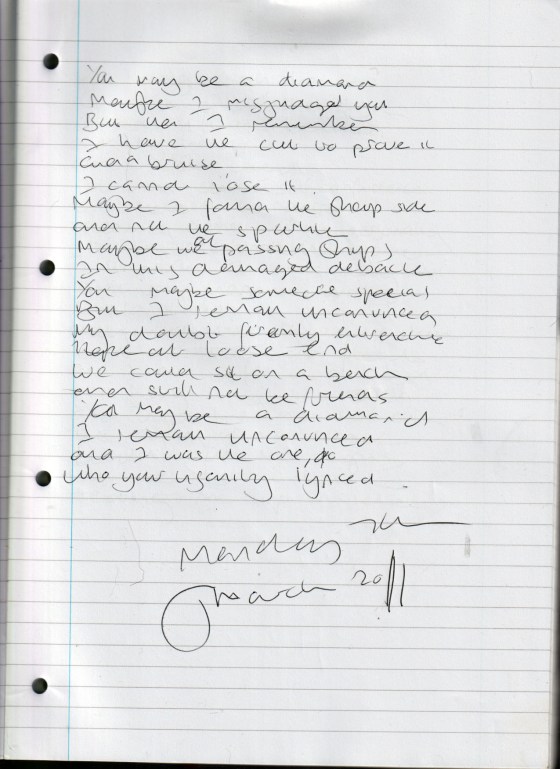 You may be a diamond
Maybe I misjudged you
But yet I remember
I have the cut to prove it
and a bruise
I cannot lose it
Maybe I found the sharp side
and not the sparkle
Maybe we are passing ships
In this damaged debacle
You maybe someone special
But I remain unconvinced
My doubt firmly entrenched
Hope at loose end
We could sit on a bench
and still not be friends
You may be a diamond
I remain unconvinced
and I was the one,
who you lynced
Monday
March 2011